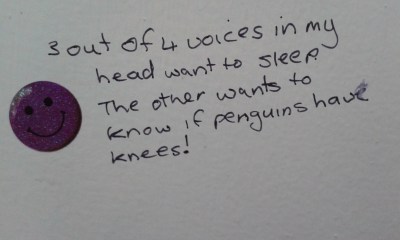 3 out of 4 voices in my
head want to sleep.
The other wants to
know if penguins have
knees!